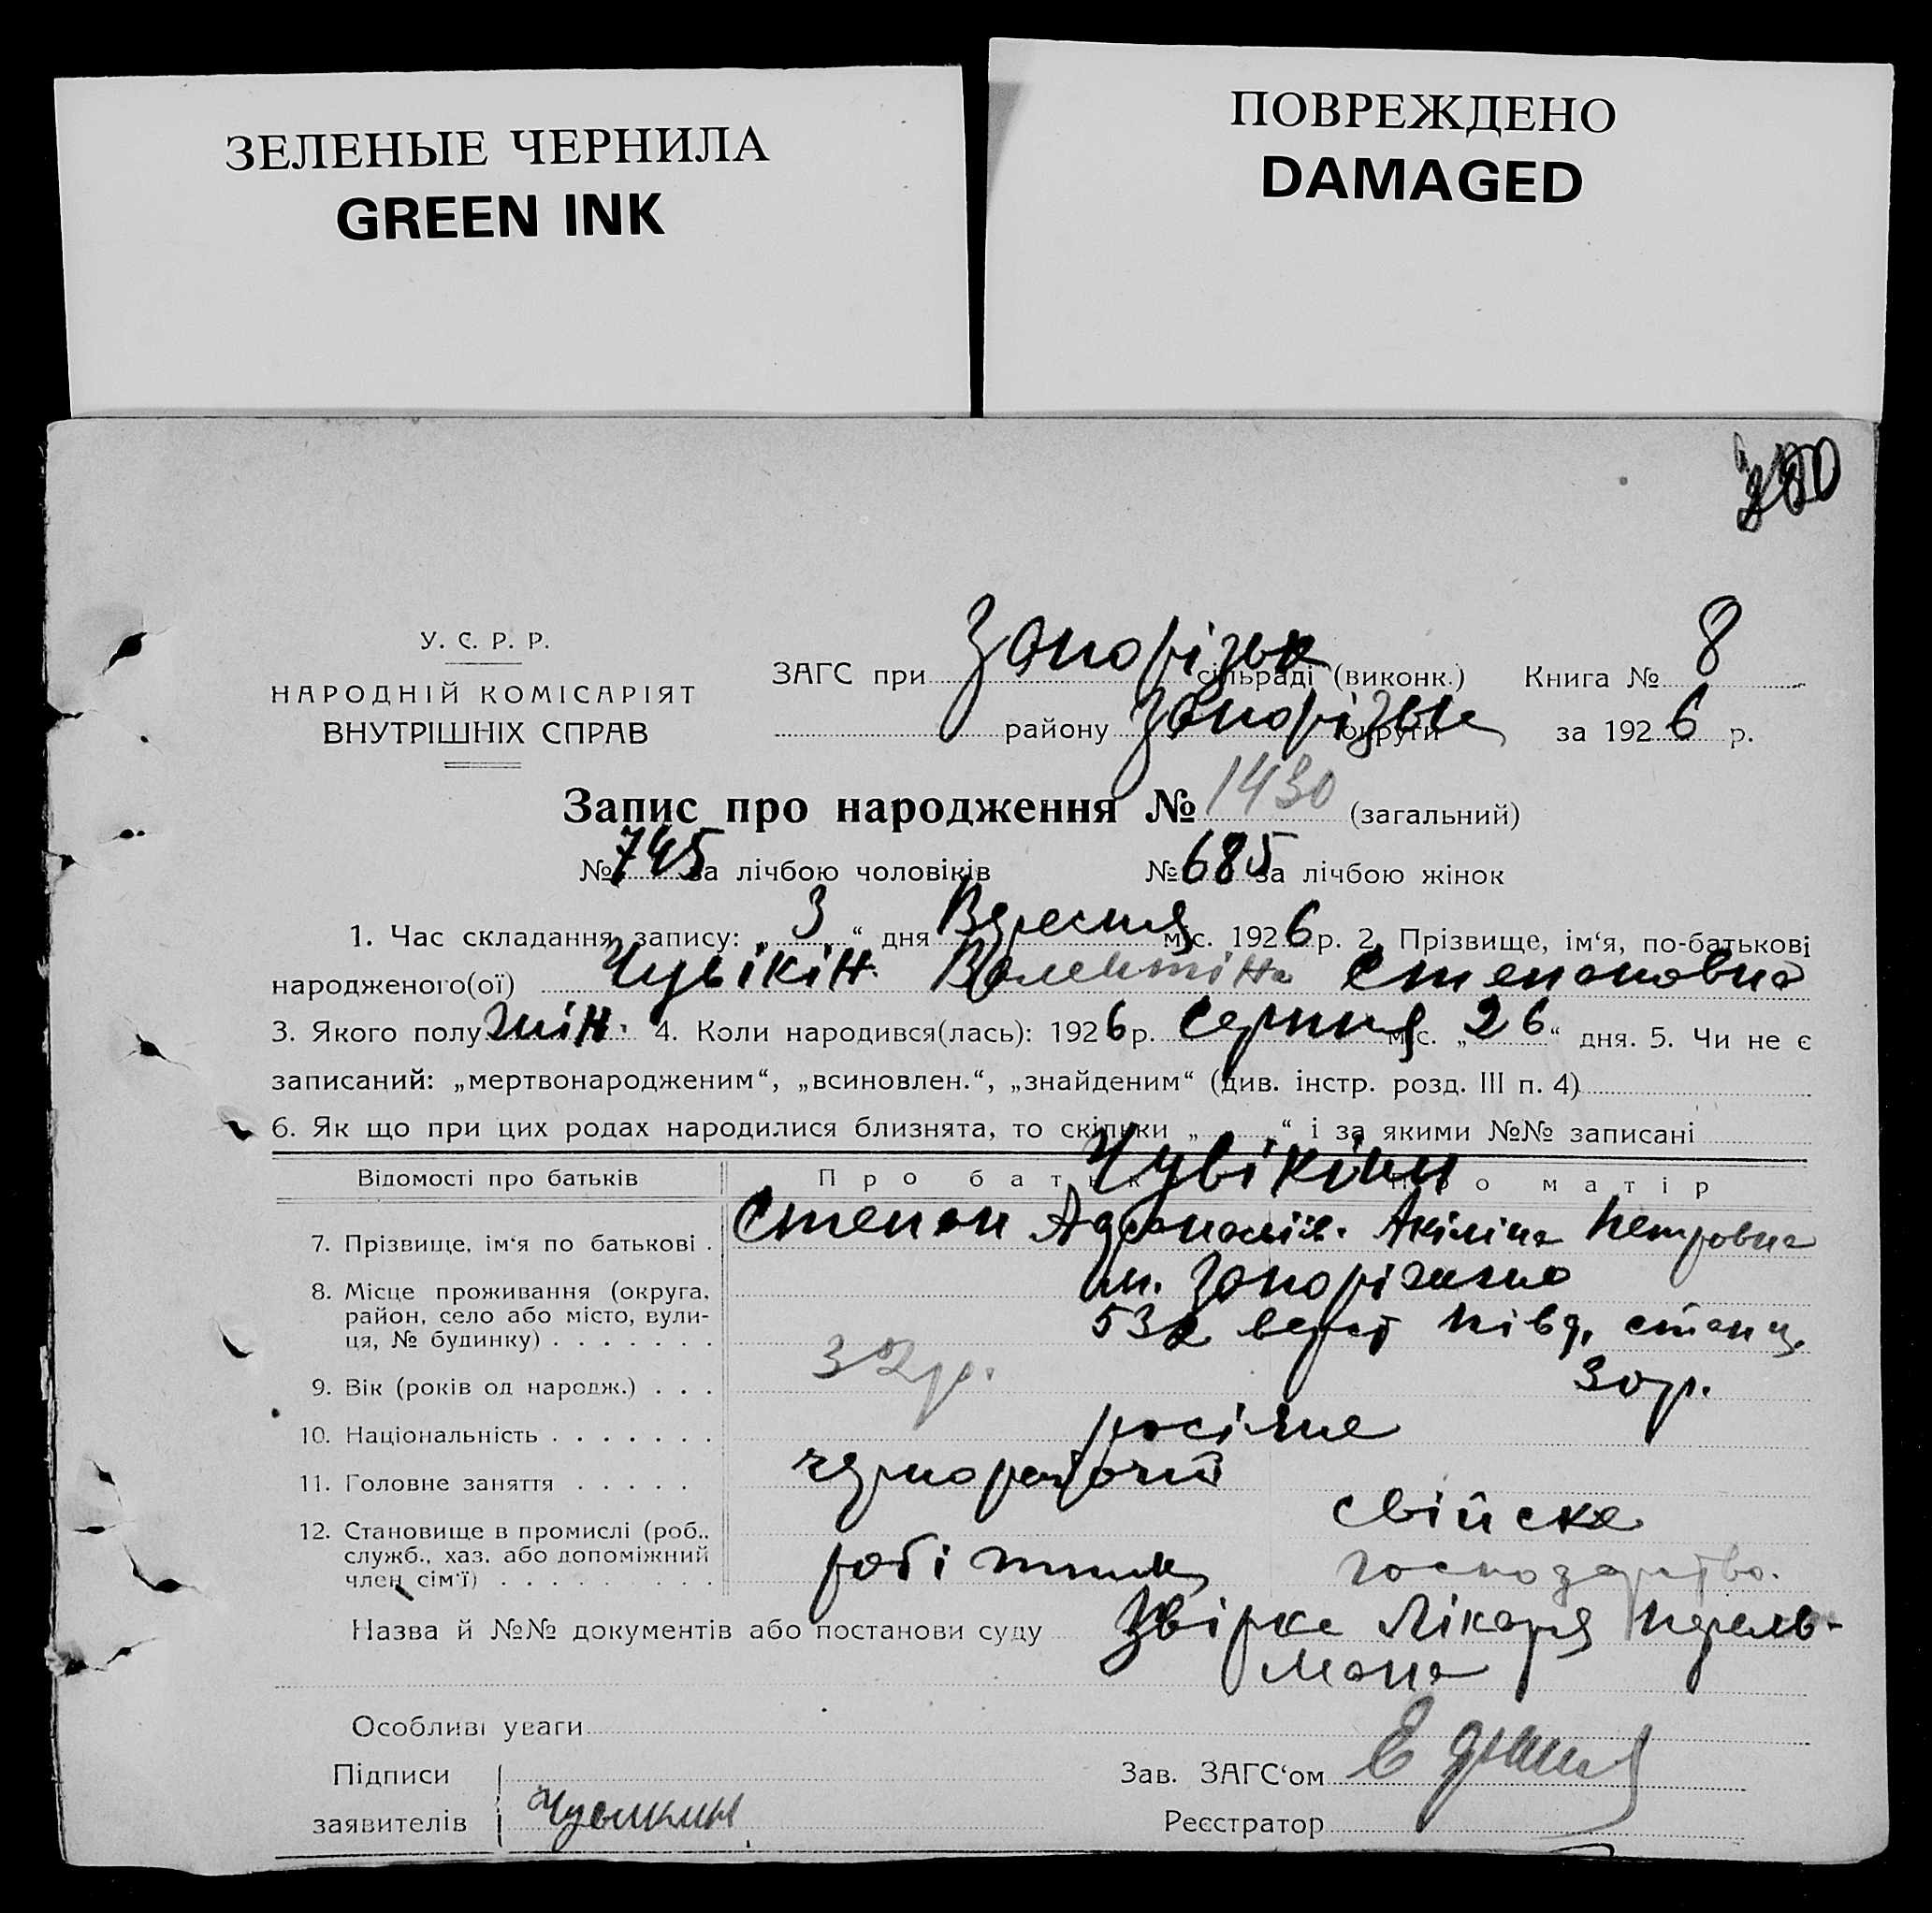 ЗЕЛЕНЫЕ ЧЕРНИЛА
GREEN INK
ПОВРЕЖДЕНО
DAMAGED
У. С. Р. Р.
НАРОДНІЙ КОМІСАРІЯТ
ВНУТРІШНІХ СПРАВ
ЗАГС при Запорізьк сільраді (виконк.) Книга № 8
району Запорізьк округи за 1926 р.
Запис про народження № 1430 (загальний)
№ 745 за лічбою чоловіків № 685 за лічбою жінок
1. Час складання запису: „3“ дня Вересня міс. 1926 р. 2. Прізвище, ім‘я, по-батькові
народженого(ої) Чувікін Валентіна Степановна
3. Якого полу жін. 4. Коли народився(лась): 1926 р. Серпня міс. „26“ дня. 5. Чи не є
записаний: „мертвонародженим“, „всиновлен.“, „знайденим“ (див. інстр. розд. III п. 4)
6. Як що при цих родах народилися близнята, то скільки „ “ і за якими №№ записані
Відомості про батьків Про батька Про матір
Чувікіни
7. Прізвище, ім‘я по батькові . Степан Афанасіїв. Акіліна Петровна
8. Місце проживання (округа, м. Запоріжжя
район, село або місто, вули- 532 верст Півд. станц.
ця, № будинку) . . . . . . .
9. Вік (років од народж.) . . . 32 р. 30 р.
10. Національність . . . . . . . росіяне
11. Головне заняття . . . . . чернорабочий
свійске
12. Становище в промислі (роб.,
служб., хаз. або допоміжний робітник господарство.
член сім‘ї) . . . . . . . . .
Назва й №№ документів або постанови суду Лікаря Перель-
мана
Особливі уваги
Підписи Зав. ЗАГС‘ом
заявителів Чувикин Реєстратор